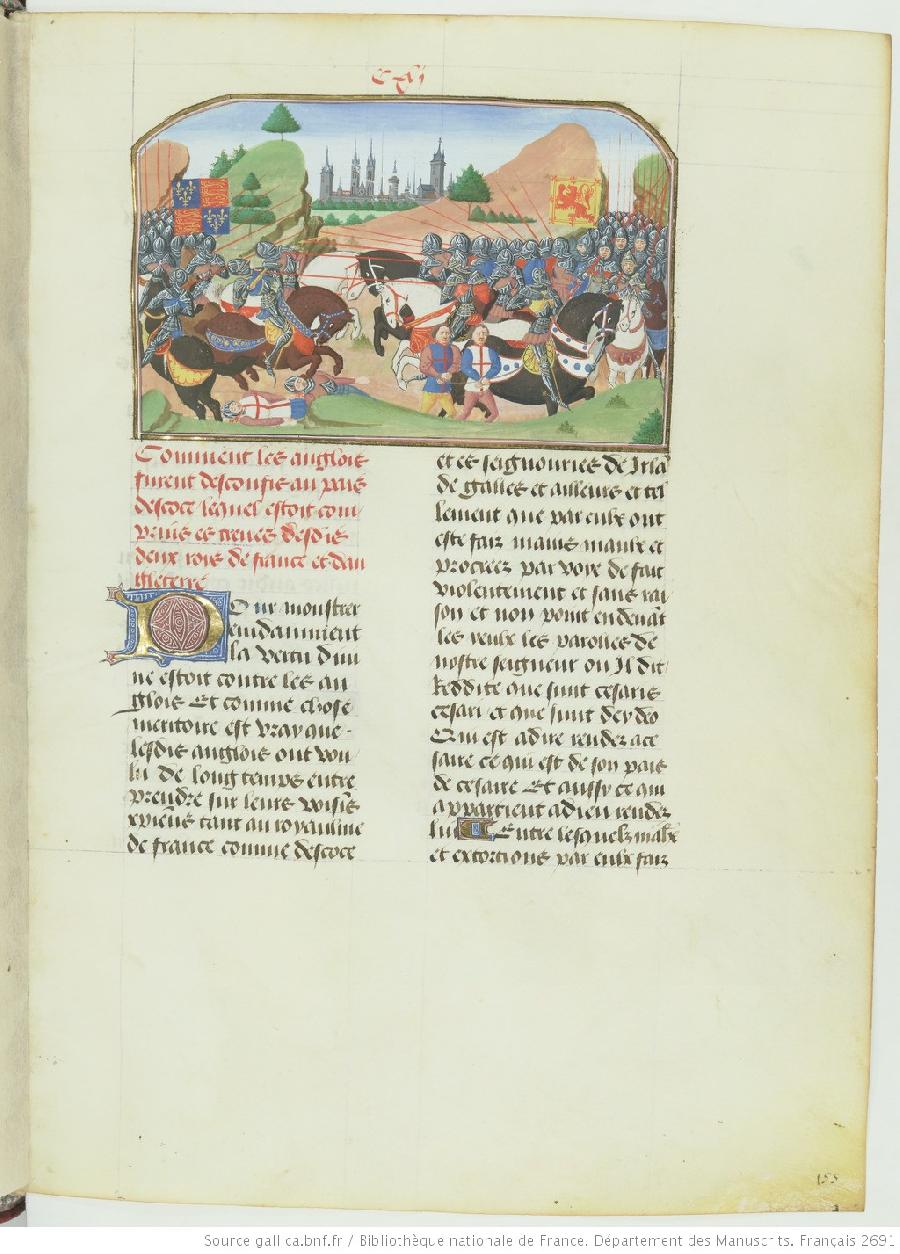 C xvi
Comment les anglois
furent desconfis au pais
descoce lequel estoit com
pruis es treues desdis
deux rois de france et dan
gleterre
Pour monstrer
euidamment
la vertu diui
ne estoit contre les an
glois Et comme chose
meritoire est vray que
lesdis anglois ont vou
lu de long temps entre
prendre sur leurs voisis
xpiens tant au royaulme
de france comme descoce
et es seignouries de Irla
de galles et ailleurs et tel
lement que par eulx ont
este fais mains maulx et
procurez par voye de fait
violentement et sans rai
son et non point en deuat
les yeulx les paroles de
nostre seigneur ou Il dit
Reddite que sunt cesaris
cesari et que sunt dei deo
Qui est a dire rendez a ce
saire ce qui est de son pais
de cesaire Et aussy ce qui
appartient a dieu rendez
lui Entre lesquelz maulx
et extorcions par eulx fais
155
Source gallica.bnf.fr / Bibliothèque nationale de France. Département des Manuscrits. Français 2691